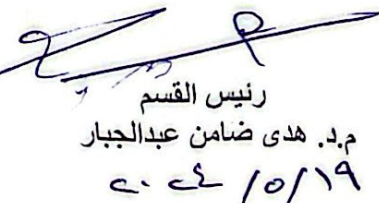 رئيس القسم
م.د. هدى ضامن عبدالجبار
٢٠٢٤/٥/١٩